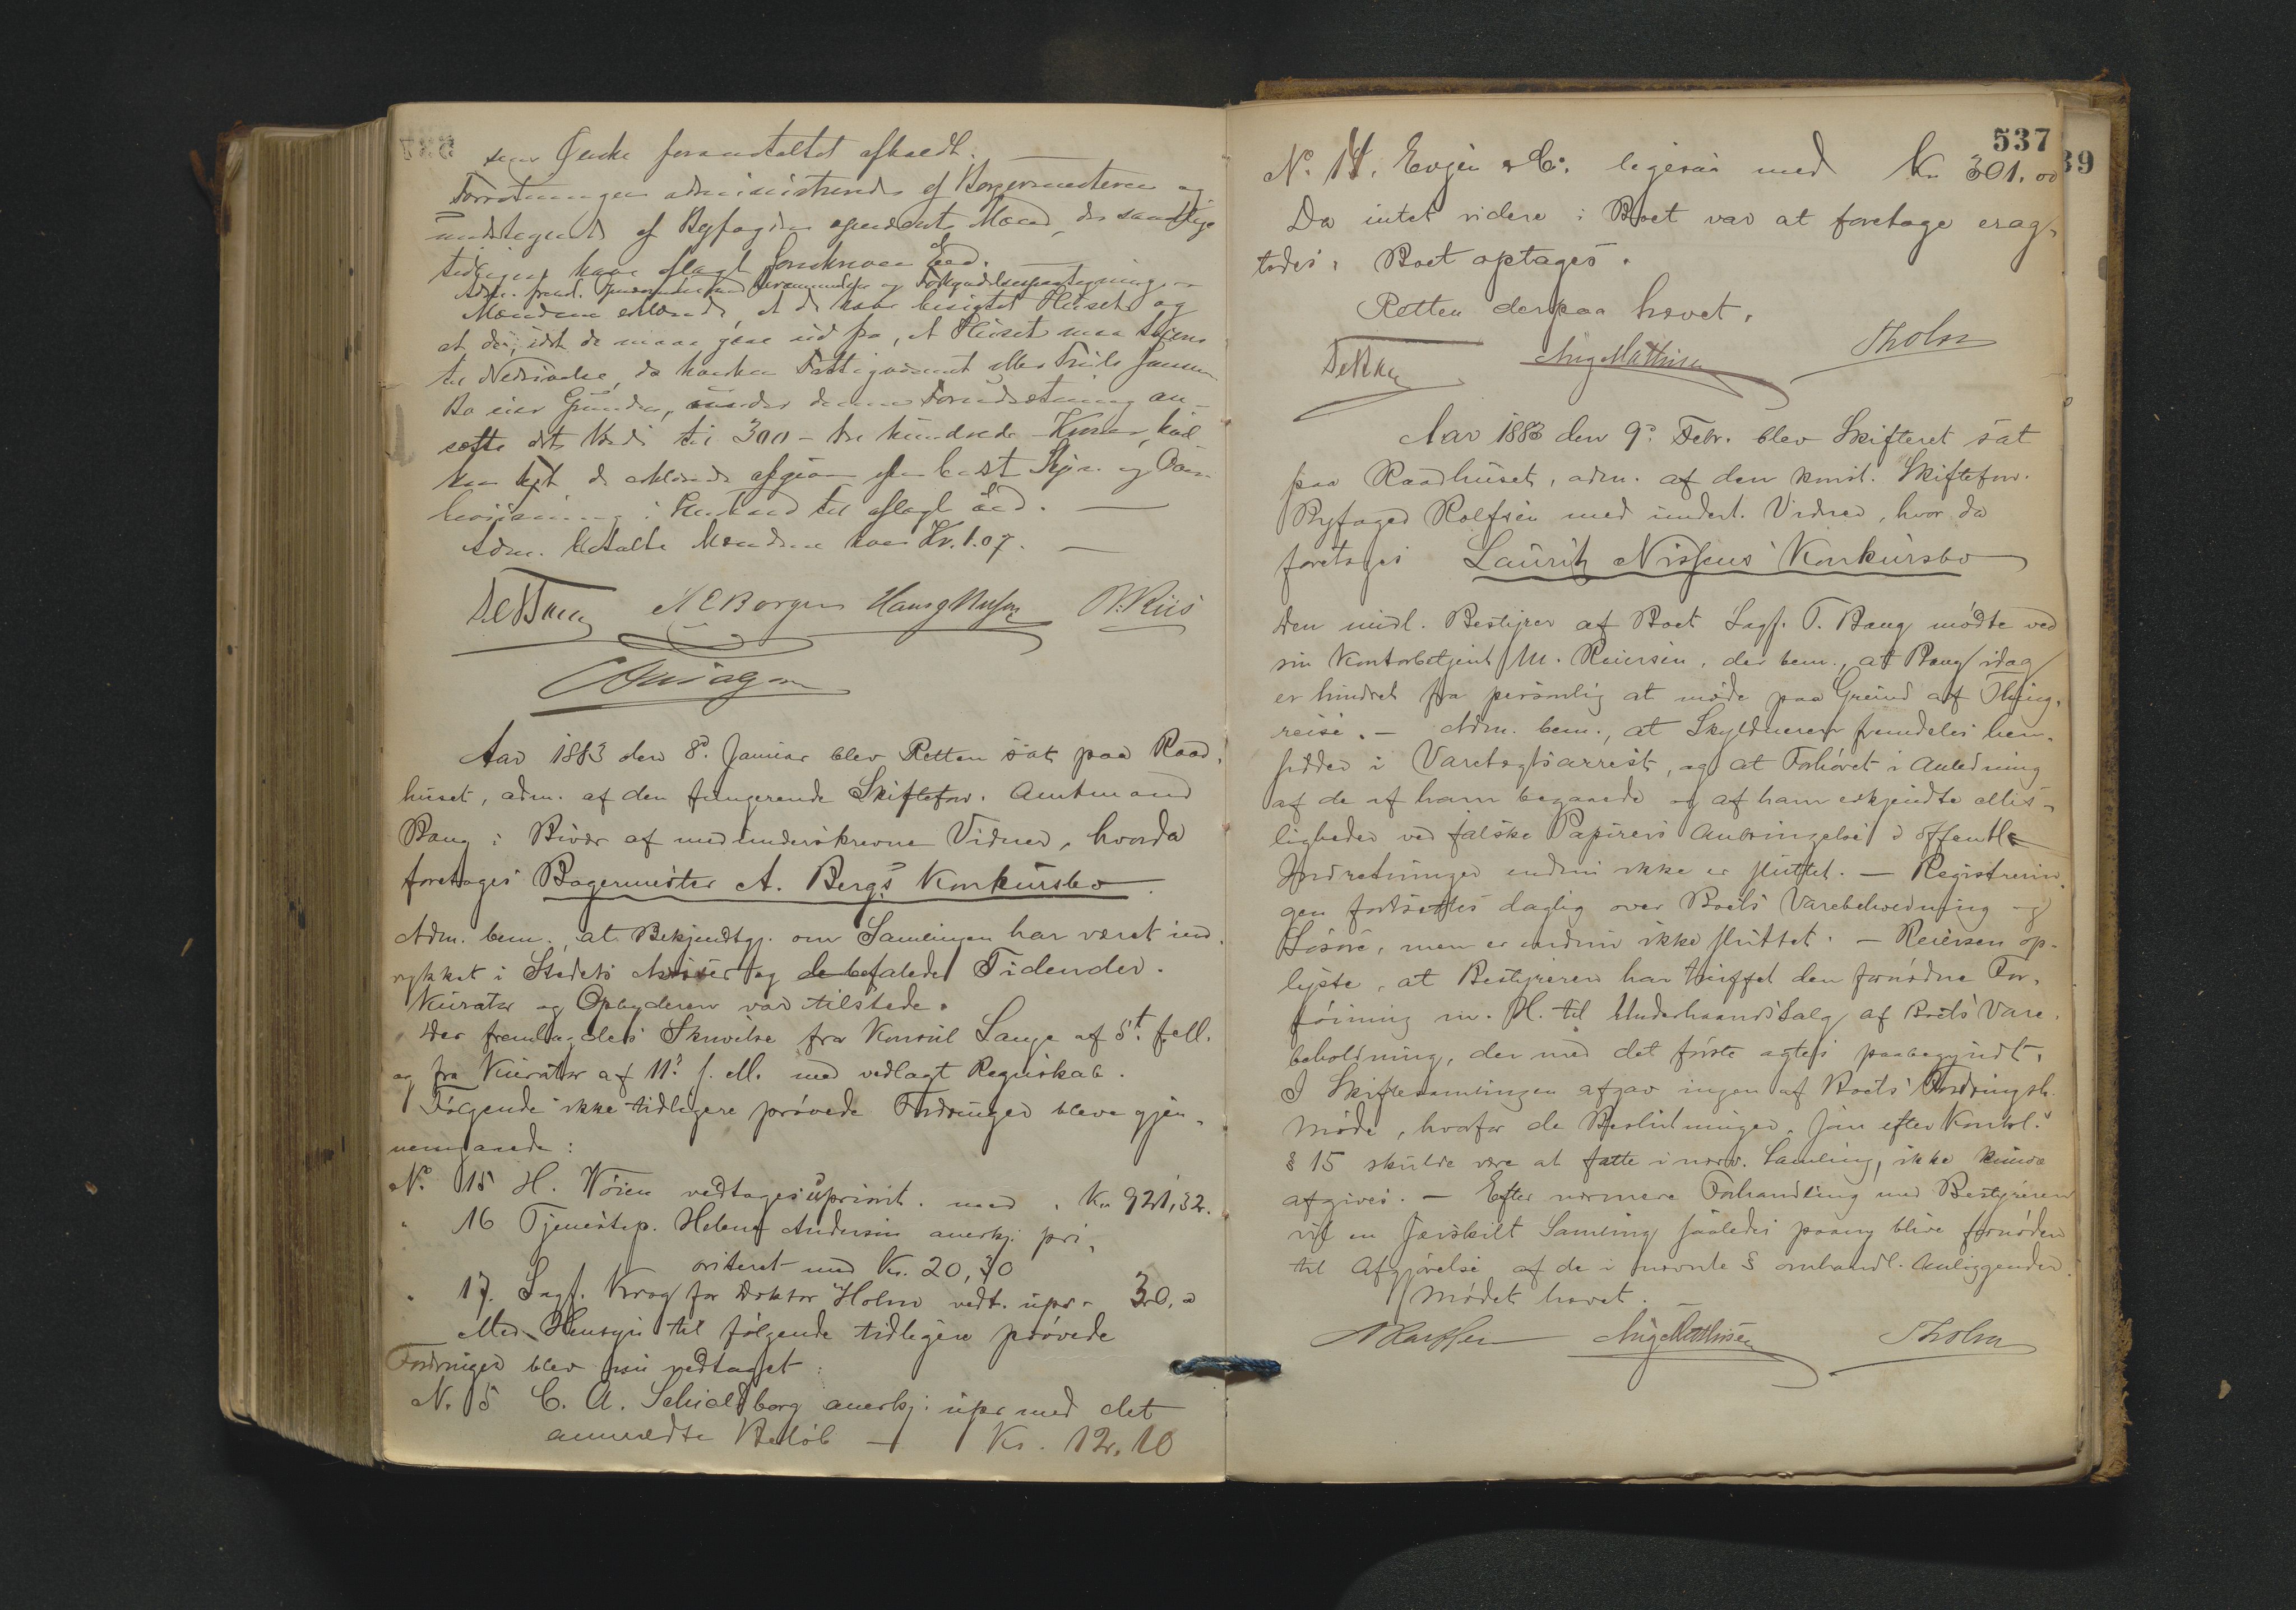 sens Ønske foranstaltet afholdt.
Forretningen administreredes af Borgermesteren og
af Byfogden opnævnte Mænd, der samtlige
tidligere have aflagt Eed.
Adm. freml.
Mændene at de have besigtet Huset og
at de, idet de maa gaae ud fra, at Huset maa
til Nedrivelse, da hverken Fattigvæsenet eller
Bo eier Grunden, under denne Forudsætning an-
sætte dets Værdi til 300 - tre hundrede - Kroner, hvil-
ket de afgivne efter bedste Skjøn og Over-
bevisning i Henhold til aflagt Eed. —
Adm. betalte Mændene hver Kr. 1.07. —
A E Borgen Hans G Nilsen W. Riis
Aar 1883 den 8de Januar blev Retten sat paa Raad-
huset, adm. af den fungerende Skiftefov. Amtmand
Bang i Overvær af medunderskrevne Vidner, hvorda
foretoges Bagermester A. Berg's Konkursbo.
Adm. bem., at Bekjendtgj. om Samlingen har været ind-
rykket i Stedets Aviser og de befalede Tidender.
Kurator og Opbyderen var tilstede.
Der fremlagdes Skrivelse fra Konsul Lange af 5t. f. M.
og fra Kurator af 11. f. M. med vedlagt Regnskab.
Følgende ikke tidligere prøvede Fordringer bleve gjen-
nemgaaede:
No. 15 H. Wöien vedtages uprivit. med . Kr. 921,32.
" 16 Tjenestep. Helene Andersen anerkj. pri-
oriteret med Kr. 20,30
" 17. Sagf. Krog for Doktor Holm vedt. upr. - 30. "
Med Hensyn til følgende tidligere prøvede
Fordringer blev nu vedtaget:
N. 5 C. A. Schieldborg anerkj. upr med det
anmeldte Beløb — Kr. 12.10
537
39
No. 14. Evjen & Co. ligesaa med Kr. 301.00
Da intet videre i Boet var at foretage erag-
tedes, Boet optages.
Retten derpaa hævet.
Aug Mathisen
Tholm
Aar 1883 den 9de Febr. blev Skifteret sat
paa Raadhuset, adm. af den konst. Skiftefov.
Byfoged Rolfsen med undert. Vidner, hvor da
foretoges Lauritz Nissens Konkursbo
Den midl. Bestyrer af Boet Sagf. T. Bang mødte ved
sin Kontorbetjent M. Reiersen, der bem., at Bang idag
er hindret fra personlig at møde paa Grund af Thing-
reise. — Adm. bem., at Skyldneren fremdeles hen-
sidder i Varetægtsarrest, og at Forhøret i Anledning
af de af ham begaaede og af ham erkjendte Mis-
ligheder ved falske Papirers Anbringelse i offentl.
Indretninger endnu ikke er sluttet. — Registrerin-
gen fortsættes daglig over Boets Varebeholdning og
Løsøre, men er endnu ikke sluttet. — Reiersen op-
lyste, at Bestyreren har truffet den fornødne For-
føining m. H. til Underhaandssalg af Boets Vare-
beholdning, der med det første agtes paabegyndt.
I Skiftesamlingen afgav ingen af Boets Fordringsh.
Møde, hvorfor de Beslutninger, som efter Konksl.
§ 15 skulde være at fatte i nærv. Samling, ikke kunde
afgives. — Efter nærmere Forhandling med Bestyreren
vil en særskilt Samling saaledes paany blive fornøden
til Afgjørelse af de i nævnte § omhandl. Anliggender.
Mødet hævet. —
Aug Mathisen
Tholm